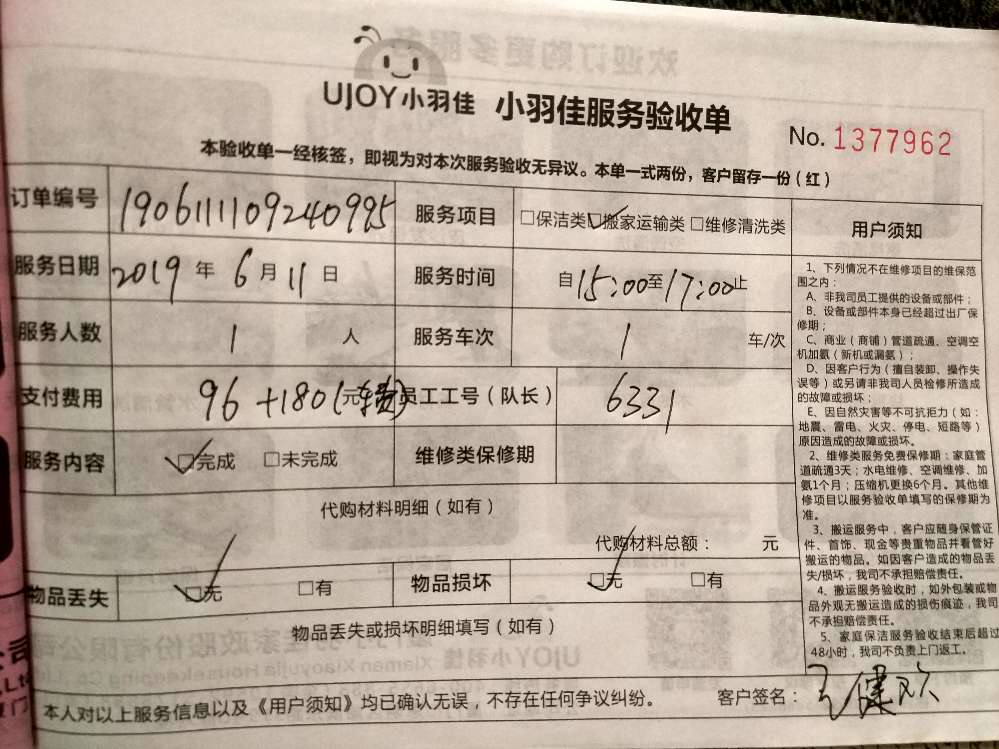 UJOY小羽佳 小羽佳服务验收单
No. 1377962
本验收单一经核签，即视为对本次服务验收无异议。本单一式两份，客户留存一份（红）
订单编号 1906111109240995 服务项目 □保洁类 ☑搬家运输类 □维修清洗类
服务日期 2019年6月11日 服务时间 自15:00至17:00止
服务人数 1 人 服务车次 1 车/次
支付费用 96+180(元 员工工号（队长） 6331
服务内容 ☑完成 □未完成 维修类保修期
代购材料明细（如有）
代购材料总额： 元
物品丢失 ☑无 □有 物品损坏 ☑无 □有
物品丢失或损坏明细填写（如有）
本人对以上服务信息以及《用户须知》均已确认无误，不存在任何争议纠纷。 客户签名：
用户须知
1、下列情况不在维修项目的维保范
围之内：
A、非我司员工提供的设备或部件；
B、设备或部件本身已经超过出厂保
修期；
C、商业（商铺）管道疏通、空调空
机加氨（新机或漏氨）；
D、因客户行为（擅自装卸、操作失
误等）或另请非我司人员检修所造成
的故障或损坏；
E、因自然灾害等不可抗拒力（如：
地震、雷电、火灾、停电、短路等）
原因造成的故障或损坏。
2、维修类服务免费保修期：家庭管
道疏通3天；水电维修、空调维修、加
氨1个月；压缩机更换6个月。其他维
修项目以服务验收单填写的保修期为
准。
3、搬运服务中，客户应随身保管证
件、首饰、现金等贵重物品并看管好
搬运的物品。如因客户造成的物品丢
失/损坏，我司不承担赔偿责任。
4、搬运服务验收时，如外包装或物
品外观无搬运造成的损伤痕迹，我司
不承担赔偿责任。
5、家庭保洁服务验收结束后超过
48小时，我司不负责上门返工。